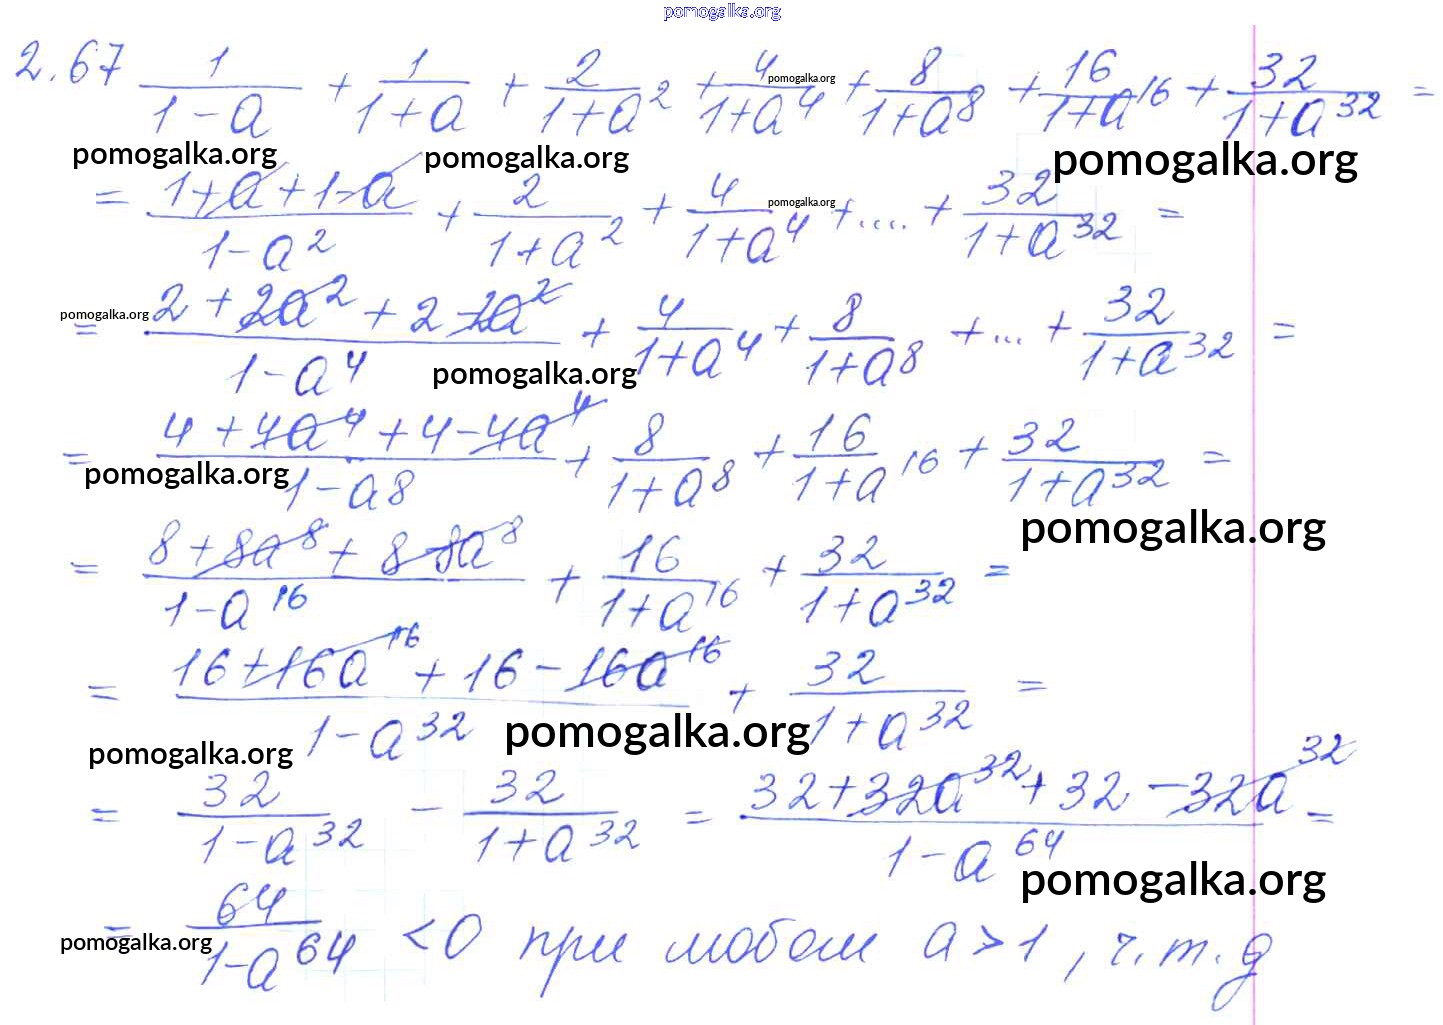 pomogalka.org
2.67 1/(1-a) + 1/(1+a) + 2/(1+a^2) + 4/(1+a^4) + 8/(1+a^8) + 16/(1+a^16) + 32/(1+a^32) =
pomogalka.org pomogalka.org pomogalka.org pomogalka.org
= (1+a+1-a)/(1-a^2) + 2/(1+a^2) + 4/(1+a^4) + .... + 32/(1+a^32) =
pomogalka.org
= (2+2a^2+2-2a^2)/(1-a^4) + 4/(1+a^4) + 8/(1+a^8) + ... + 32/(1+a^32) =
pomogalka.org pomogalka.org
= (4+4a^4+4-4a^4)/(1-a^8) + 8/(1+a^8) + 16/(1+a^16) + 32/(1+a^32) =
pomogalka.org pomogalka.org
= (8+8a^8+8-8a^8)/(1-a^16) + 16/(1+a^16) + 32/(1+a^32) =
= (16+16a^16+16-16a^16)/(1-a^32) + 32/(1+a^32) =
pomogalka.org pomogalka.org
= 32/(1-a^32) - 32/(1+a^32) = (32+32a^32+32-32a^32)/(1-a^64) =
pomogalka.org
= 64/(1-a^64) <0 при любом a>1, ч.т.д
pomogalka.org